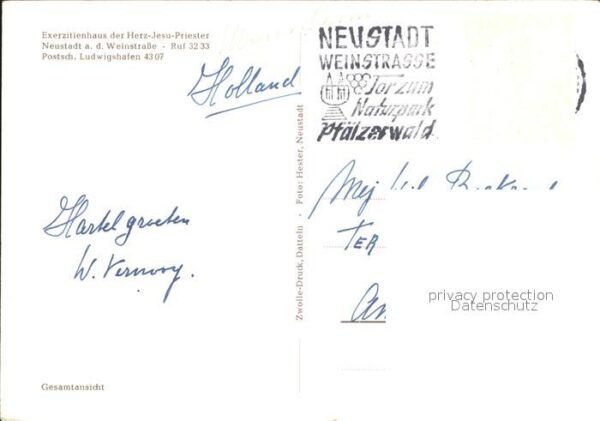 Exerzitienhaus der Herz-Jesu-Priester
Neustadt a. d. Weinstraße - Ruf 32 33
Postsch. Ludwigshafen 43 07
Holland
NEUSTADT
WEINSTRASSE
Tor zum
Naturpark
Pfälzerwald
Zwolle-Druck, Datteln · Foto: Hester, Neustadt
Hartel groeten
W. Vernooy.
Mej
TER
privacy protection
Datenschutz
Gesamtansicht